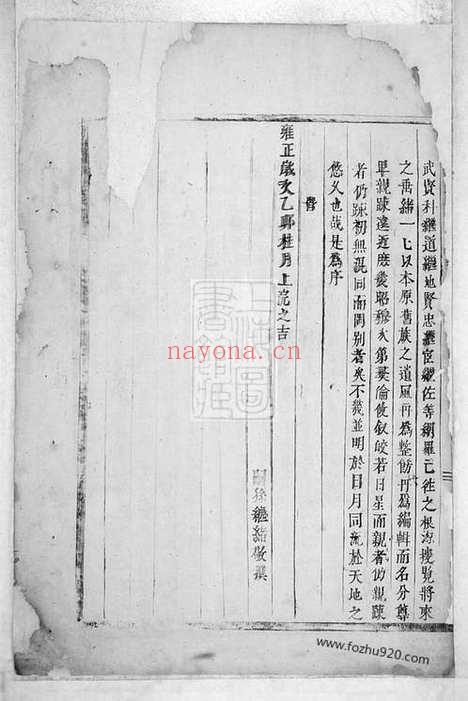 武賢利繼道繼地賢忠繼官繼佐等網羅已徃之根源搜覽將來
之番緒一一以本原舊族之遺風再為整飭再為編輯而名分尊
卑親踈遠近庶幾昭穆次第彛倫攸叙皎若日星而親者仍親踈
者仍踈初無混同而閑别者矣不幾並明於日月同流於天地之
悠久也哉是為序
旹
雍正歲次乙卯桂月上浣之吉
嗣徐繼緒敬撰
nayona.cn
www.fozhu920.com